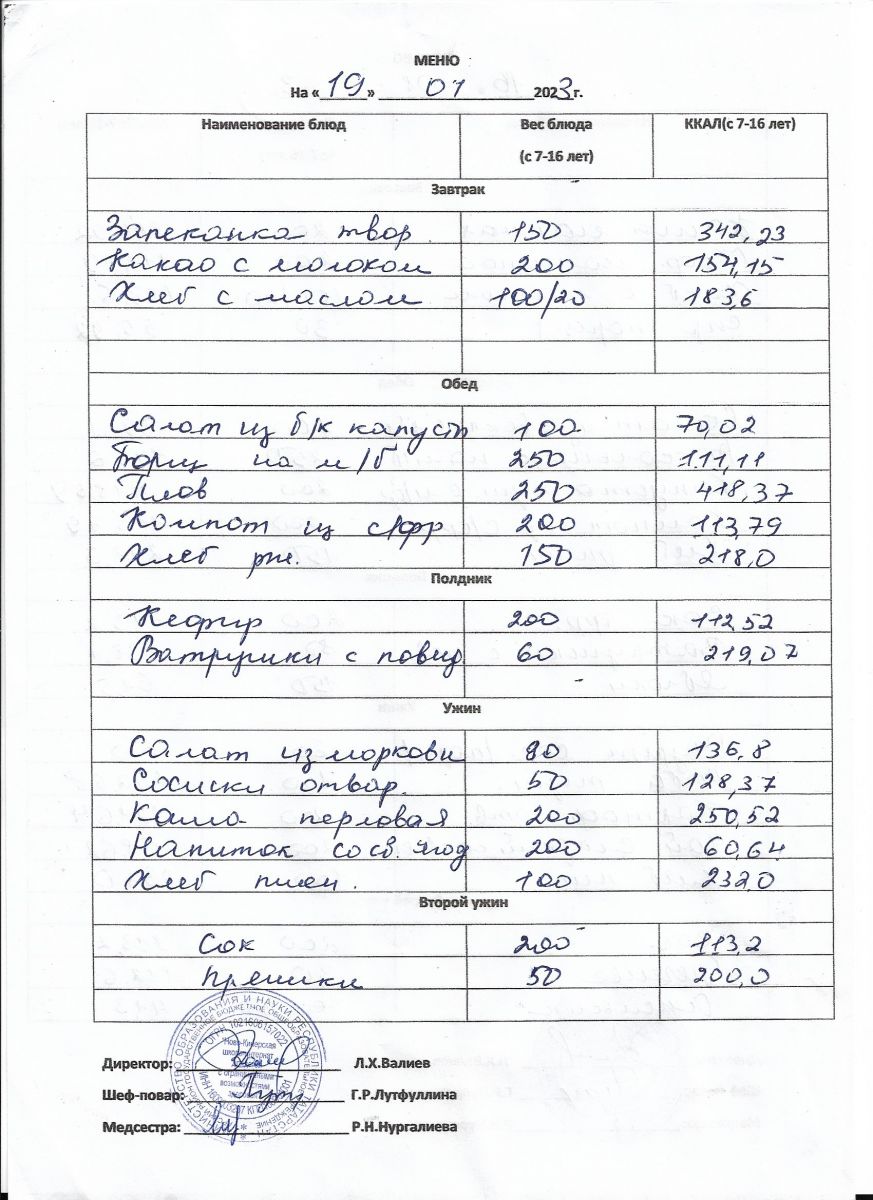 МЕНЮ
На «19» 01 2023г.
Наименование блюд Вес блюда (с 7-16 лет) ККАЛ(с 7-16 лет)
Завтрак
Запеканка твор. 150 342,23
Какао с молоком 200 154,15
Хлеб с маслом 100/20 183,6
Обед
Салат из б/к капусты 100 70,02
Борщ на м/б 250 111,11
Плов 250 418,37
Компот из с/фр 200 113,79
Хлеб рж. 150 218,0
Полдник
Кефир 200 112,52
Ватрушки с повид. 60 219,07
Ужин
Салат из моркови 80 136,8
Сосиски отвар. 50 128,37
Каша перловая 200 250,52
Напиток со св. ягод 200 60,64
Хлеб пшен. 100 232,0
Второй ужин
Сок 200 113,2
Пряники 50 200,0
Директор: Л.Х.Валиев
Шеф-повар: Г.Р.Лутфуллина
Медсестра: Р.Н.Нургалиева